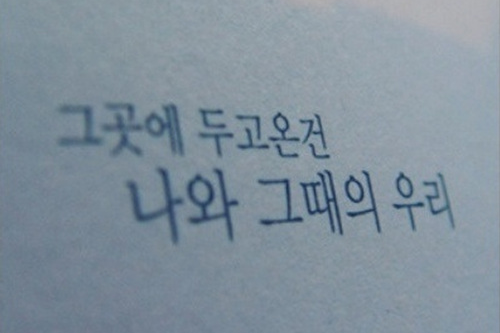 그곳에 두고온건
나와 그때의 우리